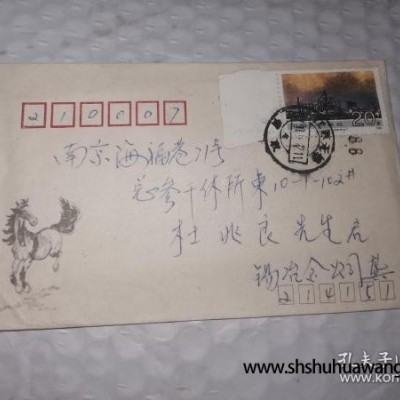 210007
南京海福巷71号
总参干休所東10-1-102#
杜兆良先生启
锡冶金公司
214151
20
www.shshuhuawang
孔夫子
www.kon